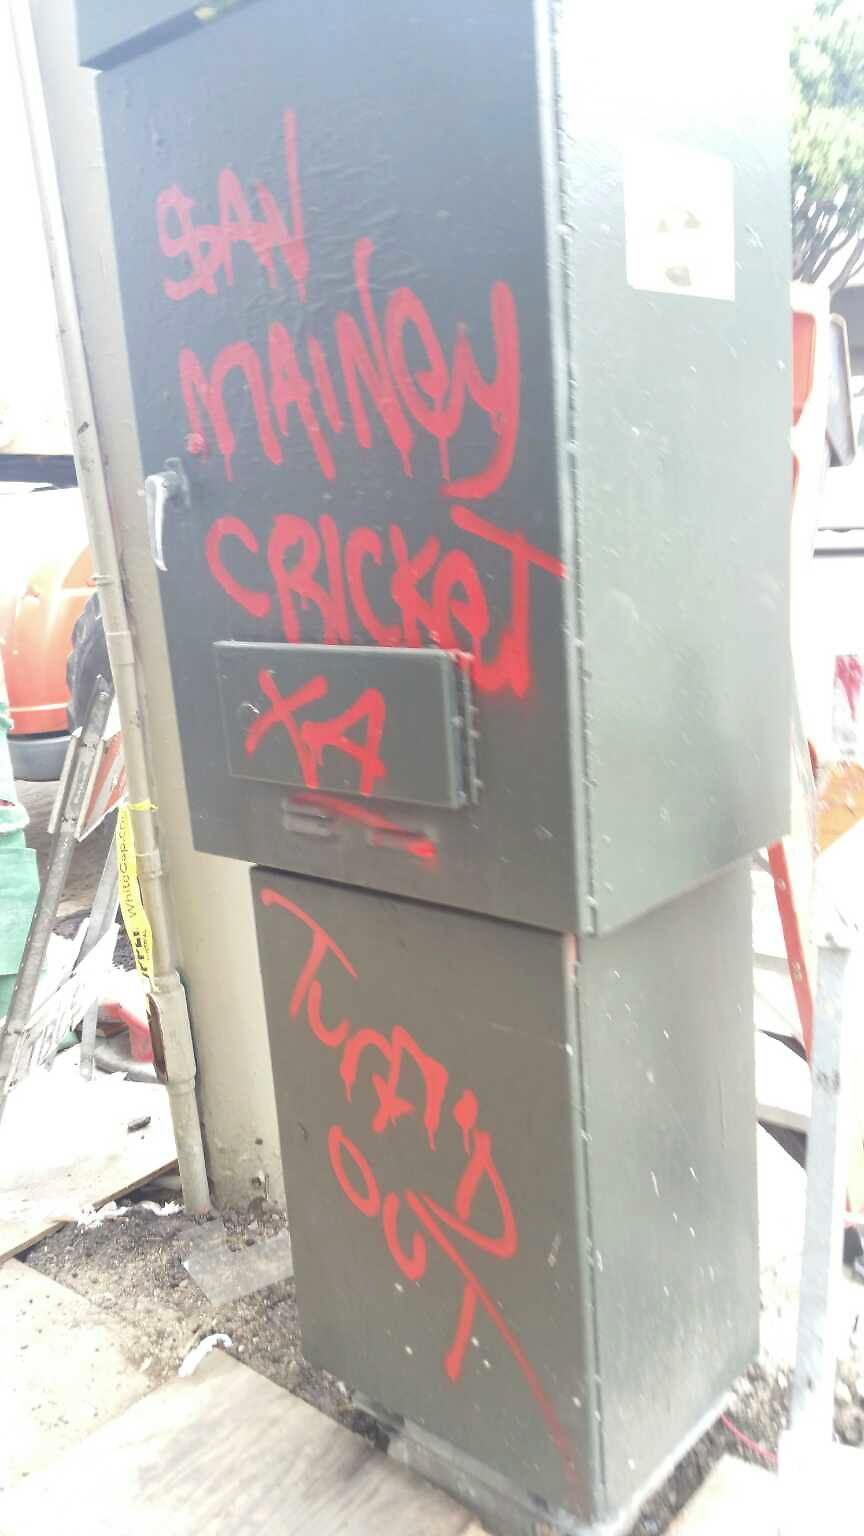 SAN
MAINey
CRICKeT
XA
TURN'D
OUT
WhiteCap.com